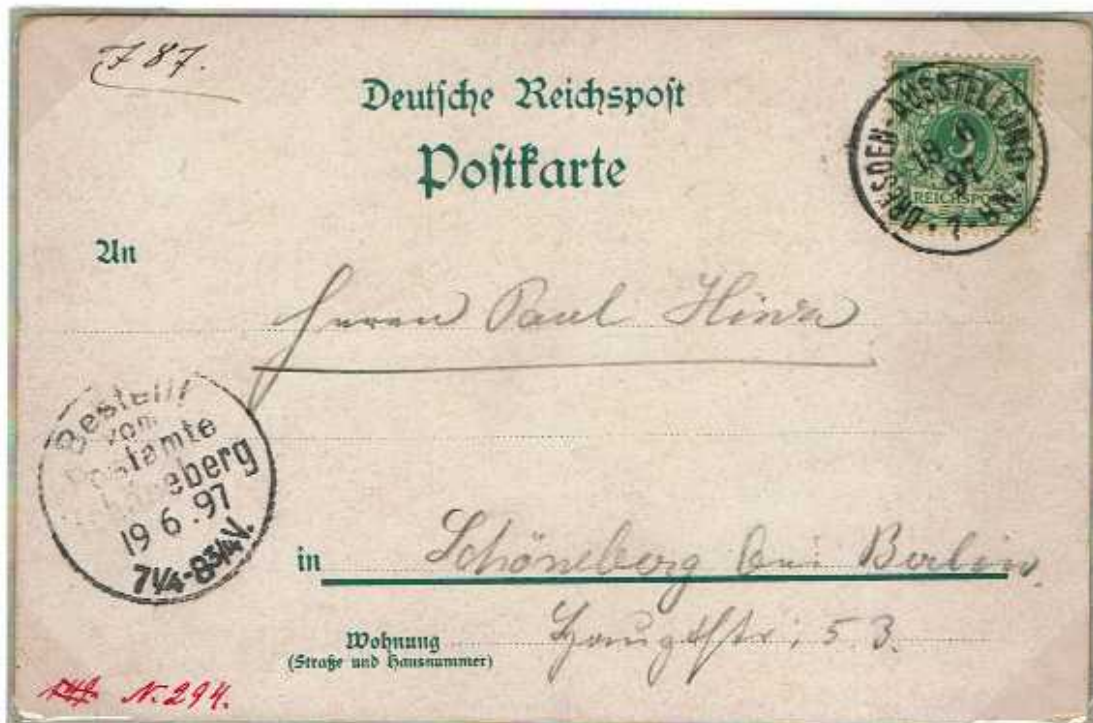 787.
Deutsche Reichspost
Postkarte
DRESDEN-AUSSTELLUNG
18 6
97
7-8N.
5
REICHSPOST
An
Herrn Paul
Bestellt
vom
Postamte
Schöneberg
19 6.97
7¼-8¾V.
in Schöneberg bei Berlin.
Wohnung Hauptstr. 53.
(Straße und Hausnummer)
N.294.